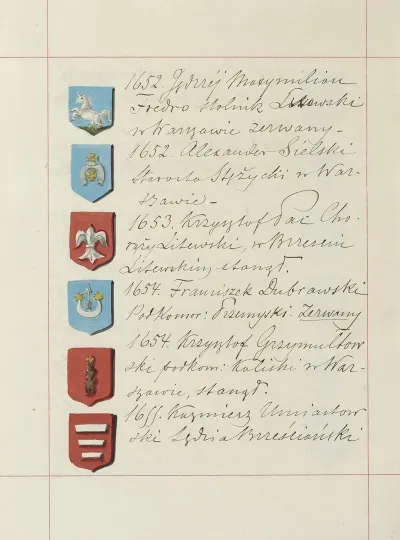 1652. Jędrzéj Maxymilian
Fredro stolnik Lwowski
w Warszawie zerwany –
1652. Alexander Sielski
Starosta Stężycki w War-
szawie –
1653. Krzysztof Pac Cho-
rąży Litewski, w Brześciu
Litewskim, stanął.
1654. Franciszek Dubrawski
Podkomor: Przemyski. Zerwany
1654. Krzysztof Grzymułtow
ski podkom: Kaliski w War-
szawie, stanął.
1655. Kazimierz Umiastow
ski Sędzia Brześciański